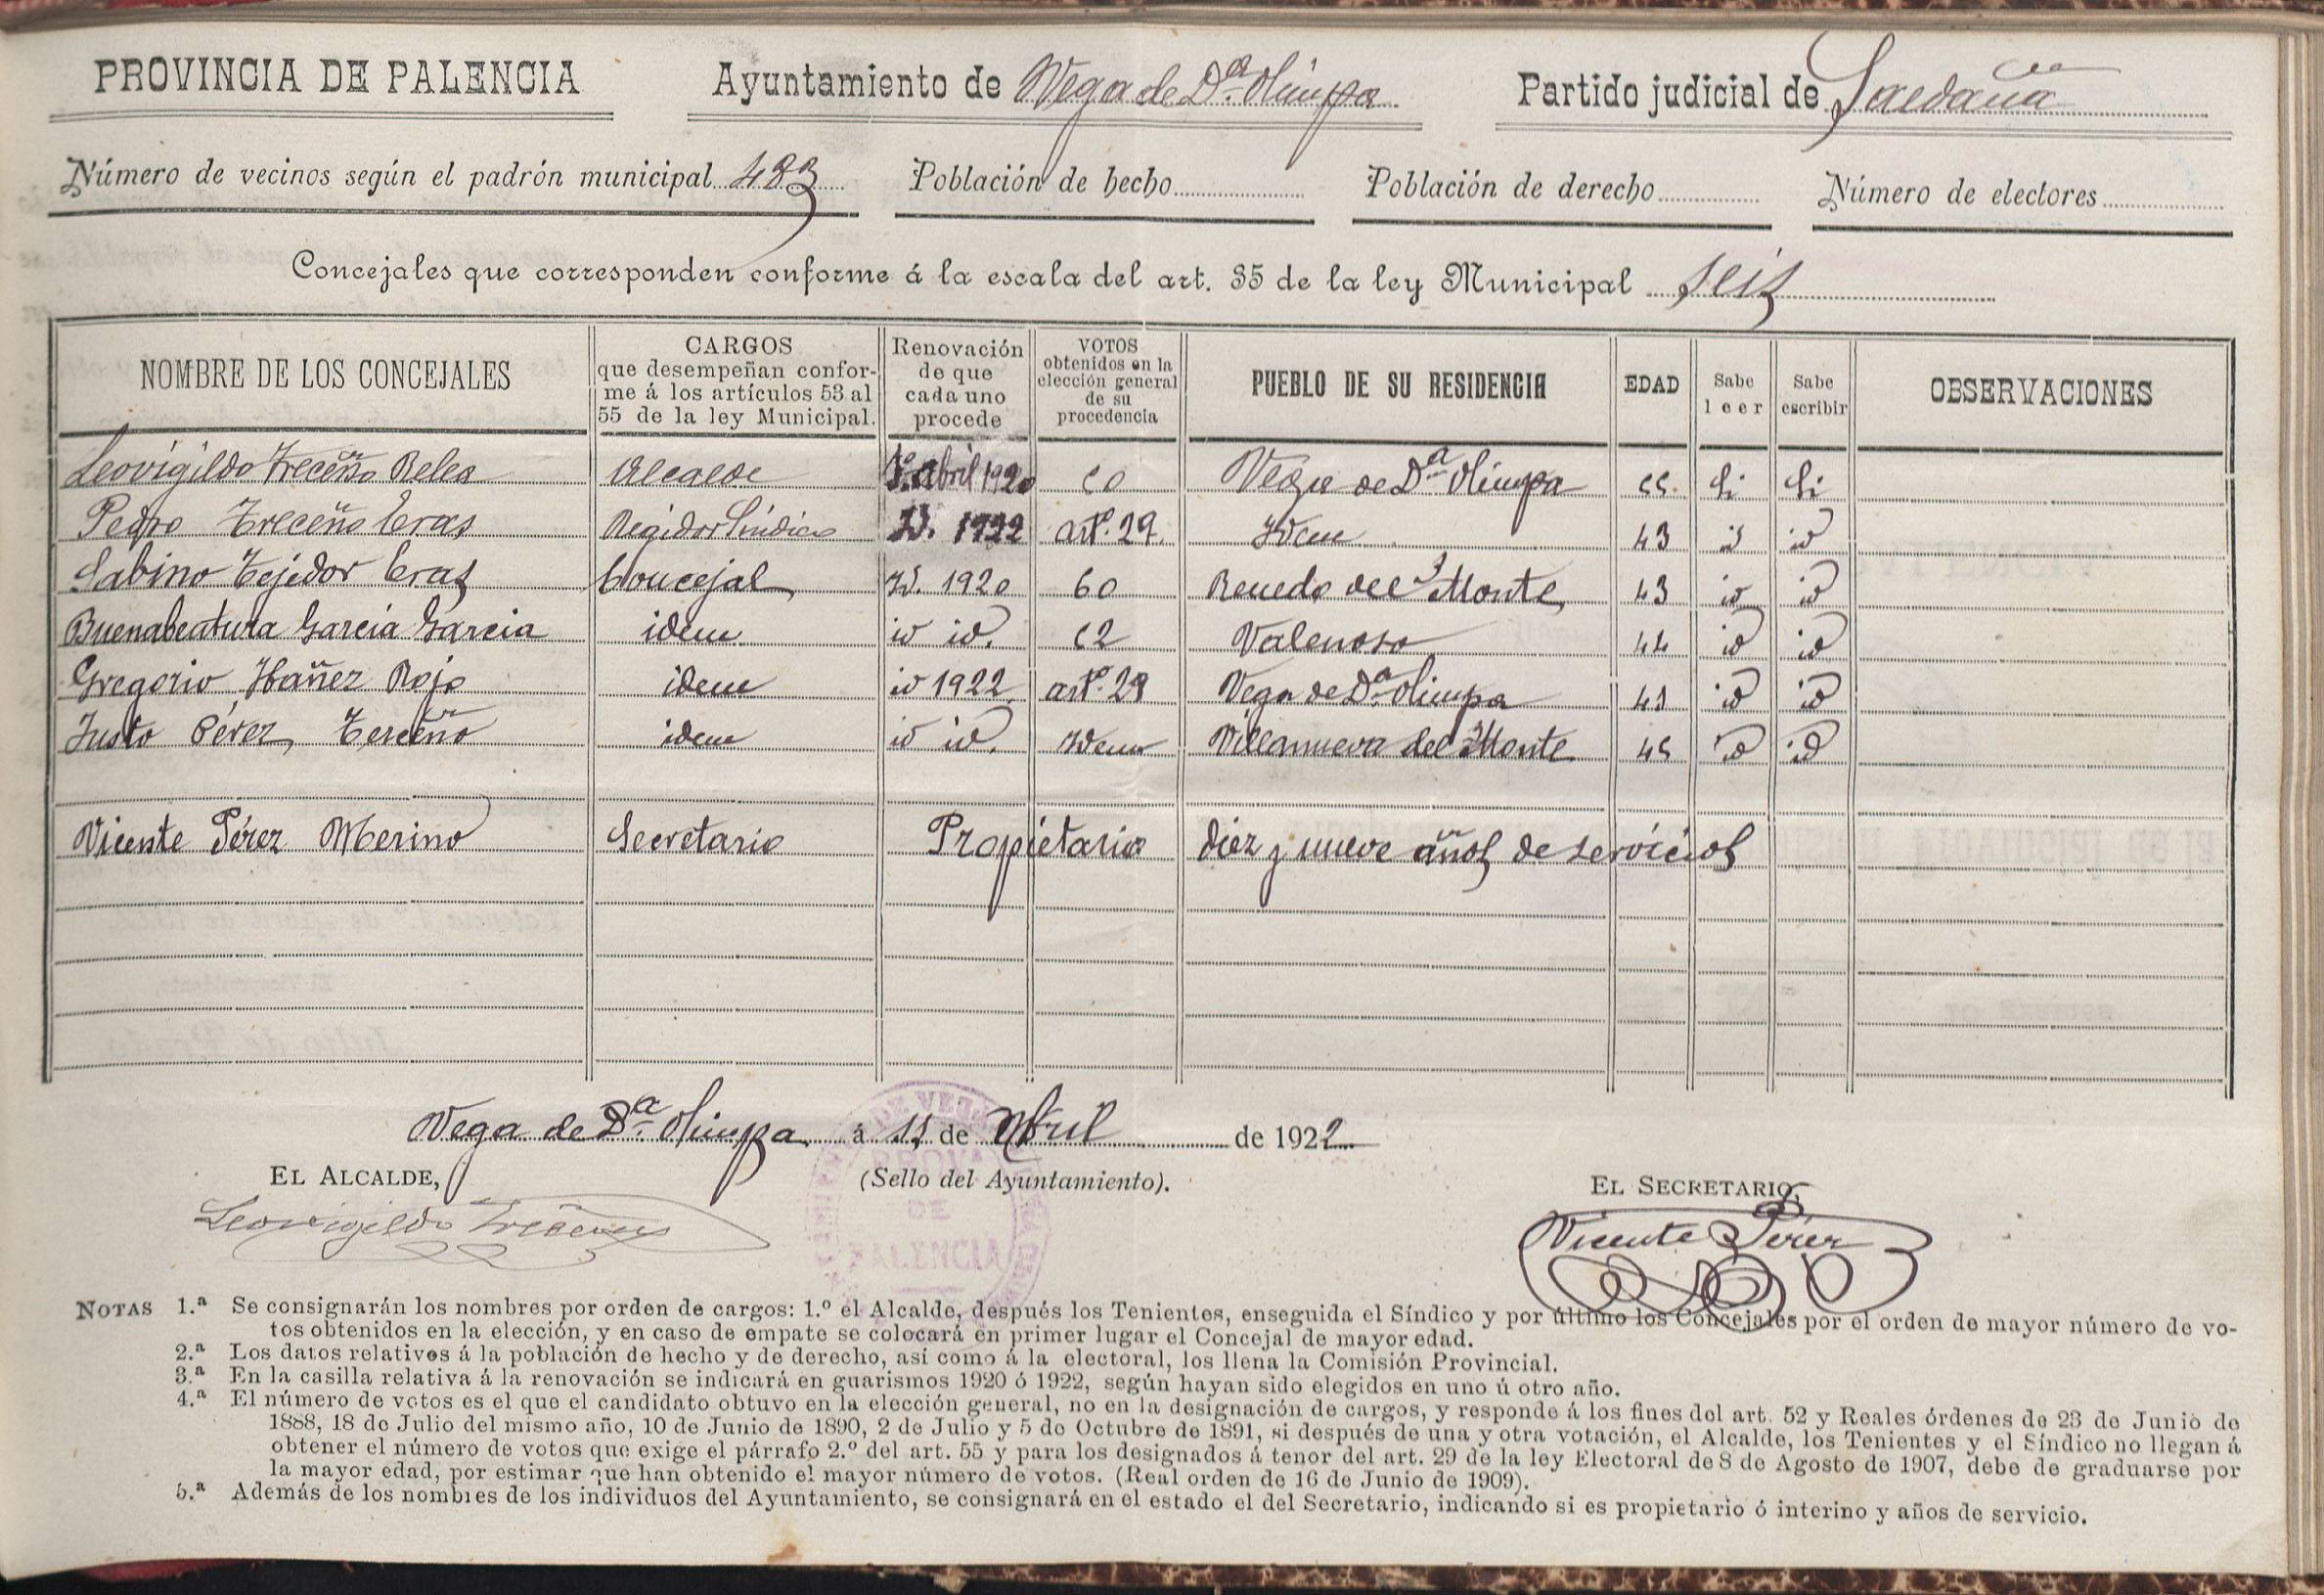 PROVINCIA DE PALENCIA Ayuntamiento de Vega de Dª Olimpa Partido judicial de Saldaña
Número de vecinos según el padrón municipal 483 Población de hecho Población de derecho Número de electores
Concejales que corresponden conforme á la escala del art. 35 de la ley Municipal seis
NOMBRE DE LOS CONCEJALES
CARGOS
que desempeñan confor-
me á los artículos 53 al
55 de la ley Municipal.
Renovación
de que
cada uno
procede
VOTOS
obtenidos en la
elección general
de su
procedencia
PUEBLO DE SU RESIDENCIA
EDAD
Sabe
leer
Sabe
escribir
OBSERVACIONES
Leovigildo Treceño Relea Alcalde 1º abril 1920 Vega de Dª Olimpa si si
Pedro Treceño Eras Regidor Síndico Id. 1922 artº. 29. Idem 43 id id
Sabino Tejedor Eras Concejal Id. 1920 60 Renedo del Monte 43 id id
Buenabentura García García idem id id. Valenoso 44 id id
Gregorio Ibáñez Rojo idem id 1922 artº. 29 Vega de Dª Olimpa id id
Justo Pérez Terceño idem id id. Idem Villanueva del Monte 45 id id
Vicente Pérez Merino Secretario Propietario diez y nueve años de servicios
Vega de Dª Olimpa á de Abril de 1922
EL ALCALDE, (Sello del Ayuntamiento). EL SECRETARIO,
Leovigildo Treceño Vicente Pérez
DE
PALENCIA
NOTAS 1.ª Se consignarán los nombres por orden de cargos: 1.º el Alcalde, después los Tenientes, enseguida el Síndico y por último los Concejales por el orden de mayor número de vo-
tos obtenidos en la elección, y en caso de empate se colocará en primer lugar el Concejal de mayor edad.
2.ª Los datos relativos á la población de hecho y de derecho, así como á la electoral, los llena la Comisión Provincial.
3.ª En la casilla relativa á la renovación se indicará en guarismos 1920 ó 1922, según hayan sido elegidos en uno ú otro año.
4.ª El número de votos es el que el candidato obtuvo en la elección general, no en la designación de cargos, y responde á los fines del art. 52 y Reales órdenes de 23 de Junio de
1888, 18 de Julio del mismo año, 10 de Junio de 1890, 2 de Julio y 5 de Octubre de 1891, si después de una y otra votación, el Alcalde, los Tenientes y el Síndico no llegan á
obtener el número de votos que exige el párrafo 2.º del art. 55 y para los designados á tenor del art. 29 de la ley Electoral de 8 de Agosto de 1907, debe de graduarse por
la mayor edad, por estimar que han obtenido el mayor número de votos. (Real orden de 16 de Junio de 1909).
5.ª Además de los nombres de los individuos del Ayuntamiento, se consignará en el estado el del Secretario, indicando si es propietario ó interino y años de servicio.